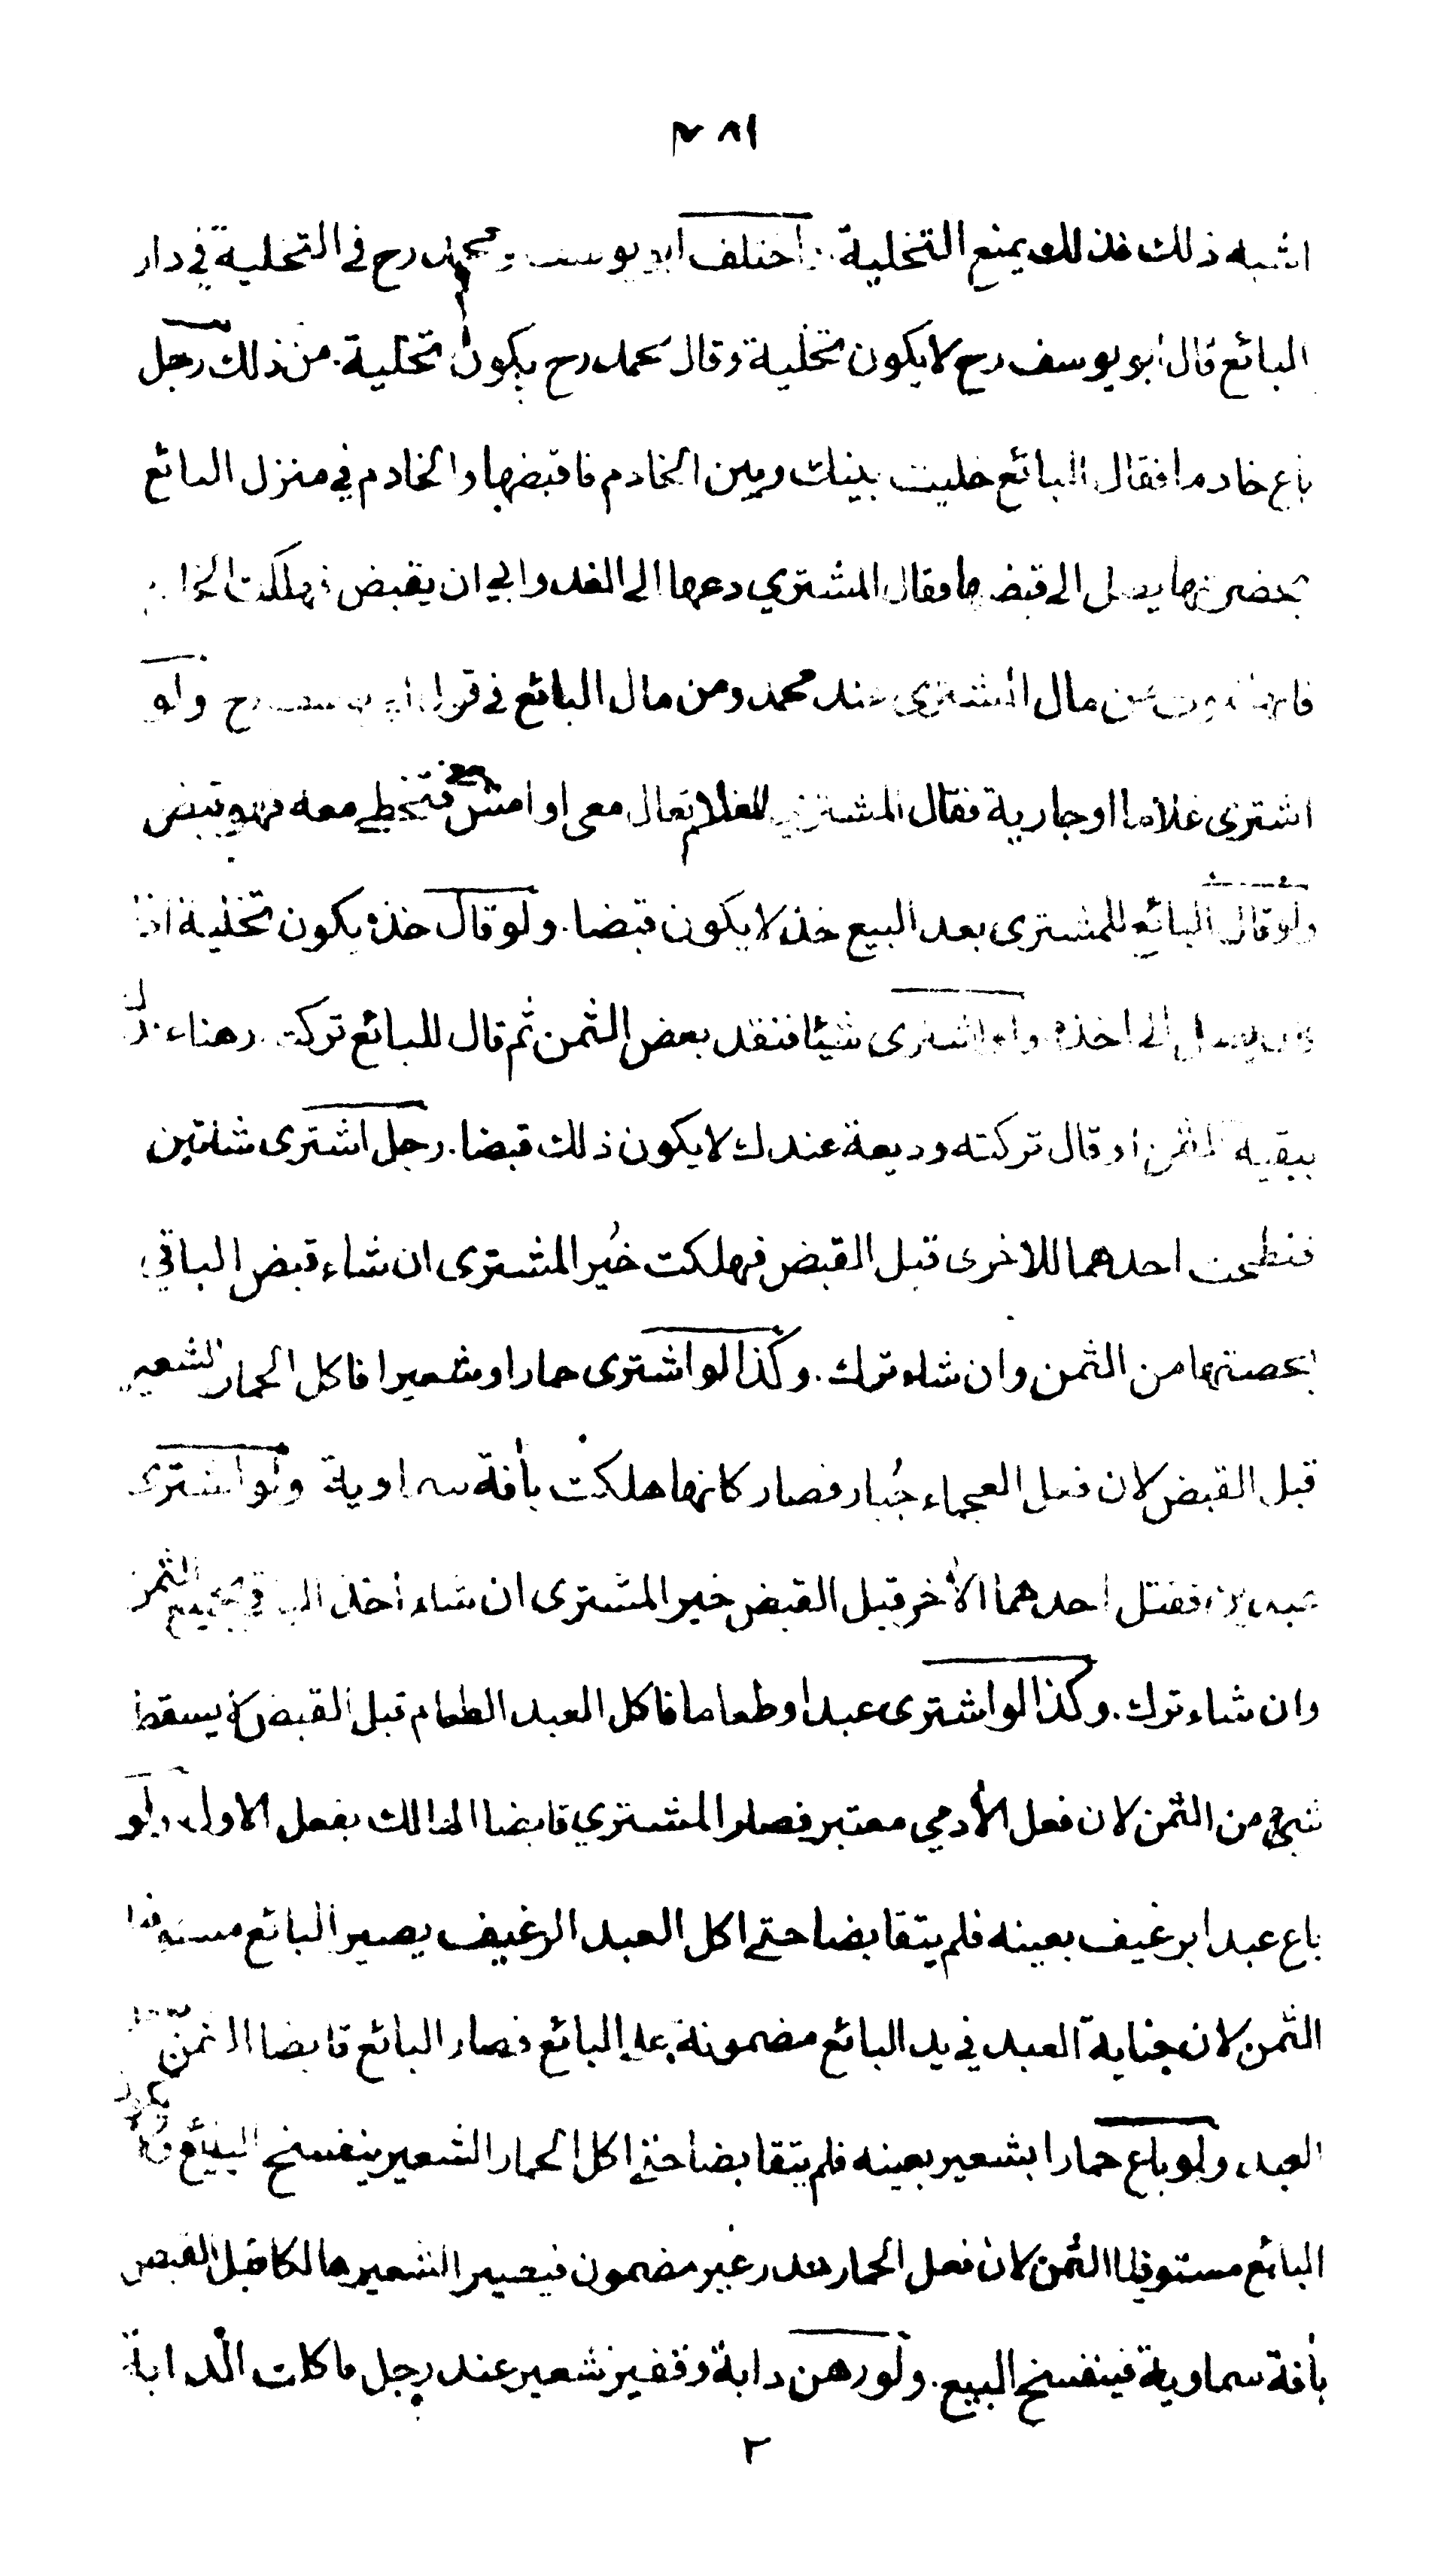 ٢٨١
اشبه ذلك فذلك يمنع التخلية . اختلف ابو يوسف ومحمد رح في التخلية في دار
البائع قال ابو يوسف رح لا يكون تخلية وقال محمد رح يكون تخلية . من ذلك رجل
باع خادما فقال البائع خليت بينك وبين الخادم فاقبضها والخادم في منزل البائع
بحضرتها يصل الى قبضها فقال المشتري دعها الى الغد وابى ان يقبض فهلكت الخادم
فانها من مال المشترى عند محمد ومن مال البائع في قول ابي يوسف رح ولو
اشترى غلاما او جارية فقال المشتري للغلام تعال معى او امش معى فتخطى معه فهو قبض
ولو قال البائع للمشترى بعد البيع خذ لا يكون قبضا . ولو قال خذه يكون تخلية اذا
كان يصل الى اخذه ولو اشترى شيئا فنقد بعض الثمن ثم قال للبائع تركته رهنا عندك
ببقية الثمن او قال تركته وديعة عندك لا يكون ذلك قبضا . رجل اشترى شاتين
فنطحت احدهما للاخرى قبل القبض فهلكت خُير المشترى ان شاء قبض الباقي
بحصتها من الثمن وان شاء ترك . وكذا لو اشترى حمارا وشعيرا فاكل الحمار الشعير
قبل القبض لان فعل العجماء جُبار فصار كانها هلكت بأفة سماوية ولو اشترى
عبدين فقتل احدهما الأخر قبل القبض خير المشترى ان شاء أخذ الباقي بجميع الثمن
وان شاء ترك . وكذا لو اشترى عبدا وطعاما فاكل العبد الطعام قبل القبض لا يسقط
شيئ من الثمن لان فعل الأدمي معتبر فصار المشتري قابضا الهالك بفعل الاول ولو
باع عبدا برغيف بعينه فلم يتقابضا حتى اكل العبد الرغيف يصير البائع مستوفيا
الثمن لان جناية العبد في يد البائع مضمونة على البائع فصار البائع قابضا الثمن بجناية
العبد ولو باع حمارا بشعير بعينه فلم يتقابضا حتى اكل الحمار الشعير ينفسخ البيع ولا يكون
البائع مستوفيا الثمن لان فعل الحمار هدر غير مضمون فيصير الشعير هالكا قبل القبض
بأفة سماوية فينفسخ البيع . ولو رهن دابة وقفيز شعير عند رجل فاكلت الدابة
٢